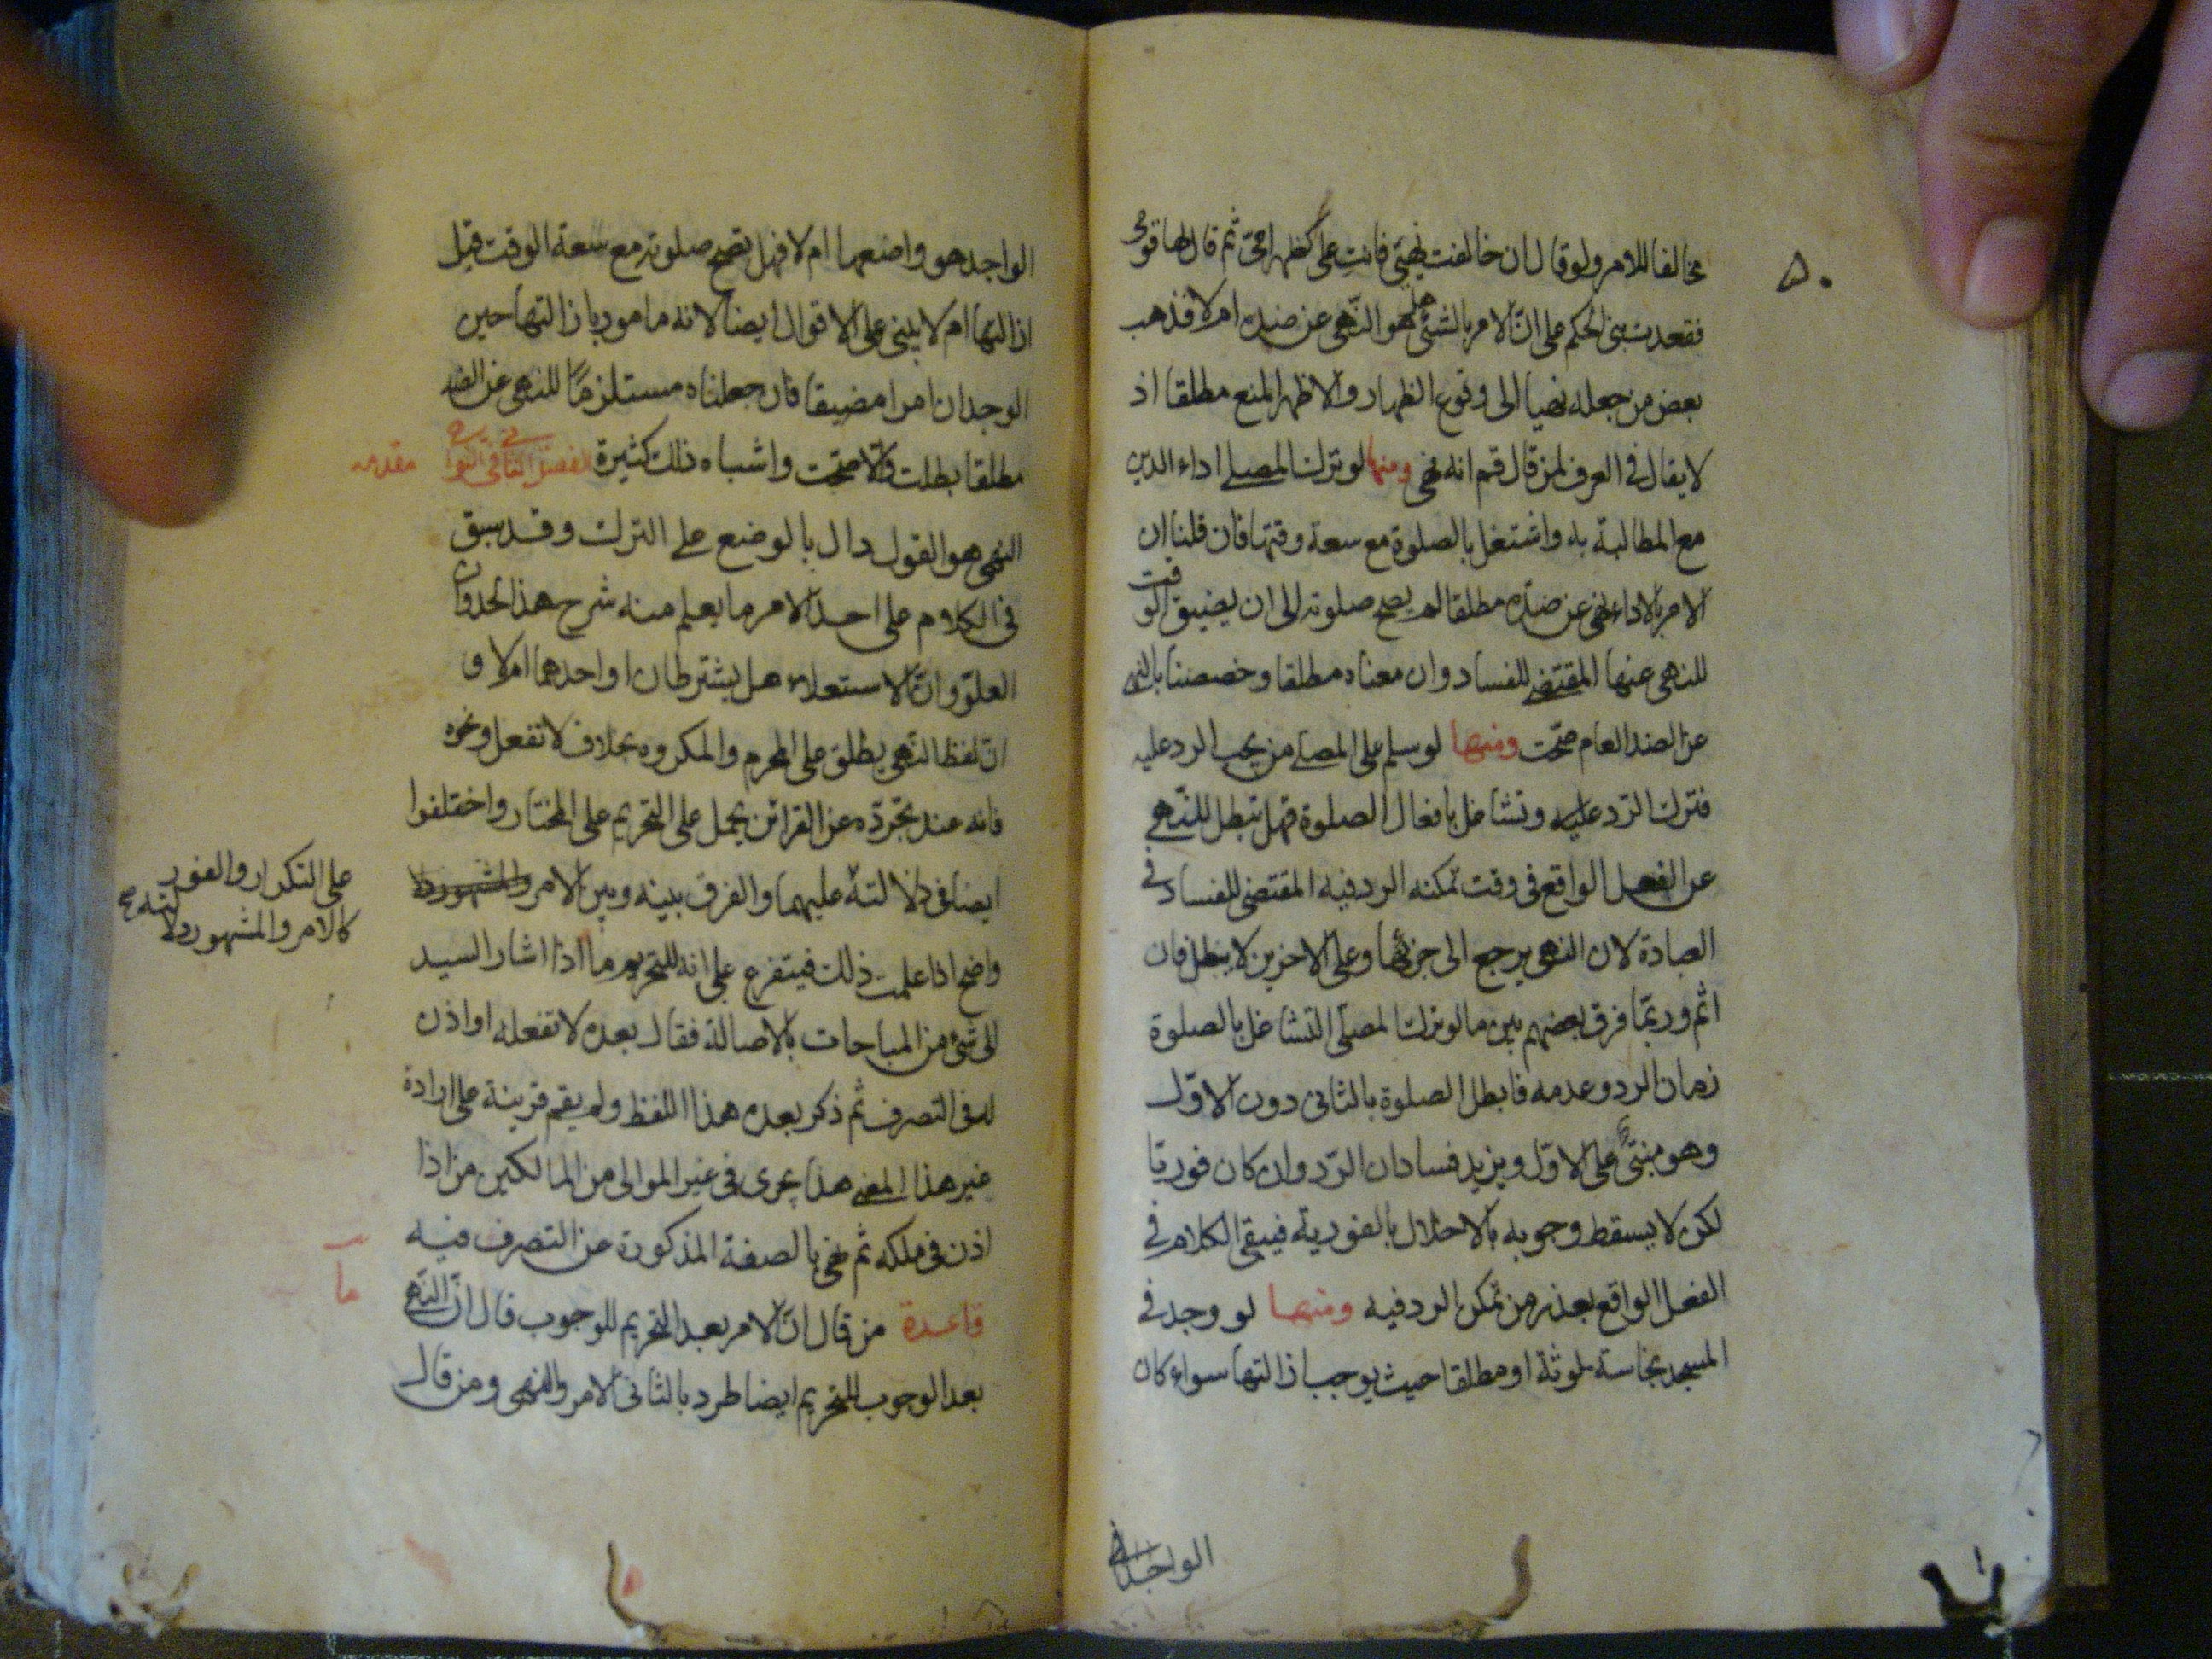 ٥٠
مخالفا للامر ولو قال ان خالفت نهيي فانت علي كظهر امي ثم قال لها قومي
فقعدت بني الحكم على انّ الامر بالشئ هل هو النّهي عن ضده ام لا فذهب
بعض من جعله نهيا الى وقوع الظهار والاظهر المنع مطلقا اذ
لا يقال في العرف لمن قال قم انه نهى ومنها لو ترك المصلي اداء الدين
مع المطالبة به واشتغل بالصلوة مع سعة وقتها فان قلنا ان
الامر بالاداء نهي عن ضدّه مطلقا لم يصح صلوته الى ان يضيق الوقت
للنهي عنها المقتضي للفساد وان معناه مطلقا وخصصنا بالنهي
عن الضد العام صحّت ومنها لو سلم على المصلي من يجب الرد عليه
فترك الرّد عليه وتشاغل بافعال الصلوة فهل تبطل للنّهي
عن الفعل الواقع في وقت تمكنه الرد فيه المقتضي للفساد في
العبادة لان النهي يرجع الى جزئها وعلى الاخرين لا يبطل فان
اثم وربّما فرق بعضهم بين ما لو ترك المصلّي التشاغل بالصلوة
زمان الرد وعدمه فابطل الصلوة بالثاني دون الاوّل
وهو مبنيّ على الاوّل ويزيد فسادا ان الرّد وان كان فوريّا
لكن لا يسقط وجوبه بالاخلال بالفورية فيبقى الكلام في
الفعل الواقع بعد زمن تمكن الرد فيه ومنها لو وجد في
المسجد نجاسة ملوثة او مطلقا حيث يوجب ازالتها سواء كان
الواجد
الواجد هو واضعها ام لا فهل تصح صلوته مع سعة الوقت قبل
ازالتها ام لا يبنى على الاقوال ايضا لانه مامور بازالتها حين
الوجدان امرا مضيقا فان جعلناه مستلزمًا للنهي عن الضد
مطلقا بطلت والّا صحّت واشباه ذلك كثيرة الفصل الثاني في النواهي مقدمه
النهي هو القول دال بالوضع على الترك وقد سبق
في الكلام على احد الامر ما يعلم منه شرح هذا الحد وان
العلوّ وانّ الاستعلاء هل يشترطان او احدهما ام لا و
انّ لفظ النّهي يطلق على المحرم والمكروه بخلاف لا تفعل ونحوه
فانه عند تجرّده عن القرائن يحمل على التحريم على المختار واختلفوا
ايضا في دلالته عليهما والفرق بينه وبين الامر
على التكرار والفور
كالامر والمشهور دلالته صح
واضح اذا علمت ذلك فيتفرع على انه للتحريم ما اذا اشار السيد
الى شئ من المباحات بالاصالة فقال بعده لا تفعله او اذن
له في التصرف ثم ذكر بعده هذا اللفظ ولم يقم قرينة على ارادة
غير هذا المعنى هذا يجري في غير الموالي من المالكين من اذا
اذن في ملكه ثم نهى بالصفة المذكورة عن التصرف فيه
قاعدة من قال انّ الامر بعد التحريم للوجوب قال انّ النّهي
بعد الوجوب للتحريم ايضا طرد بالثاني الامر والنهي ومن قال